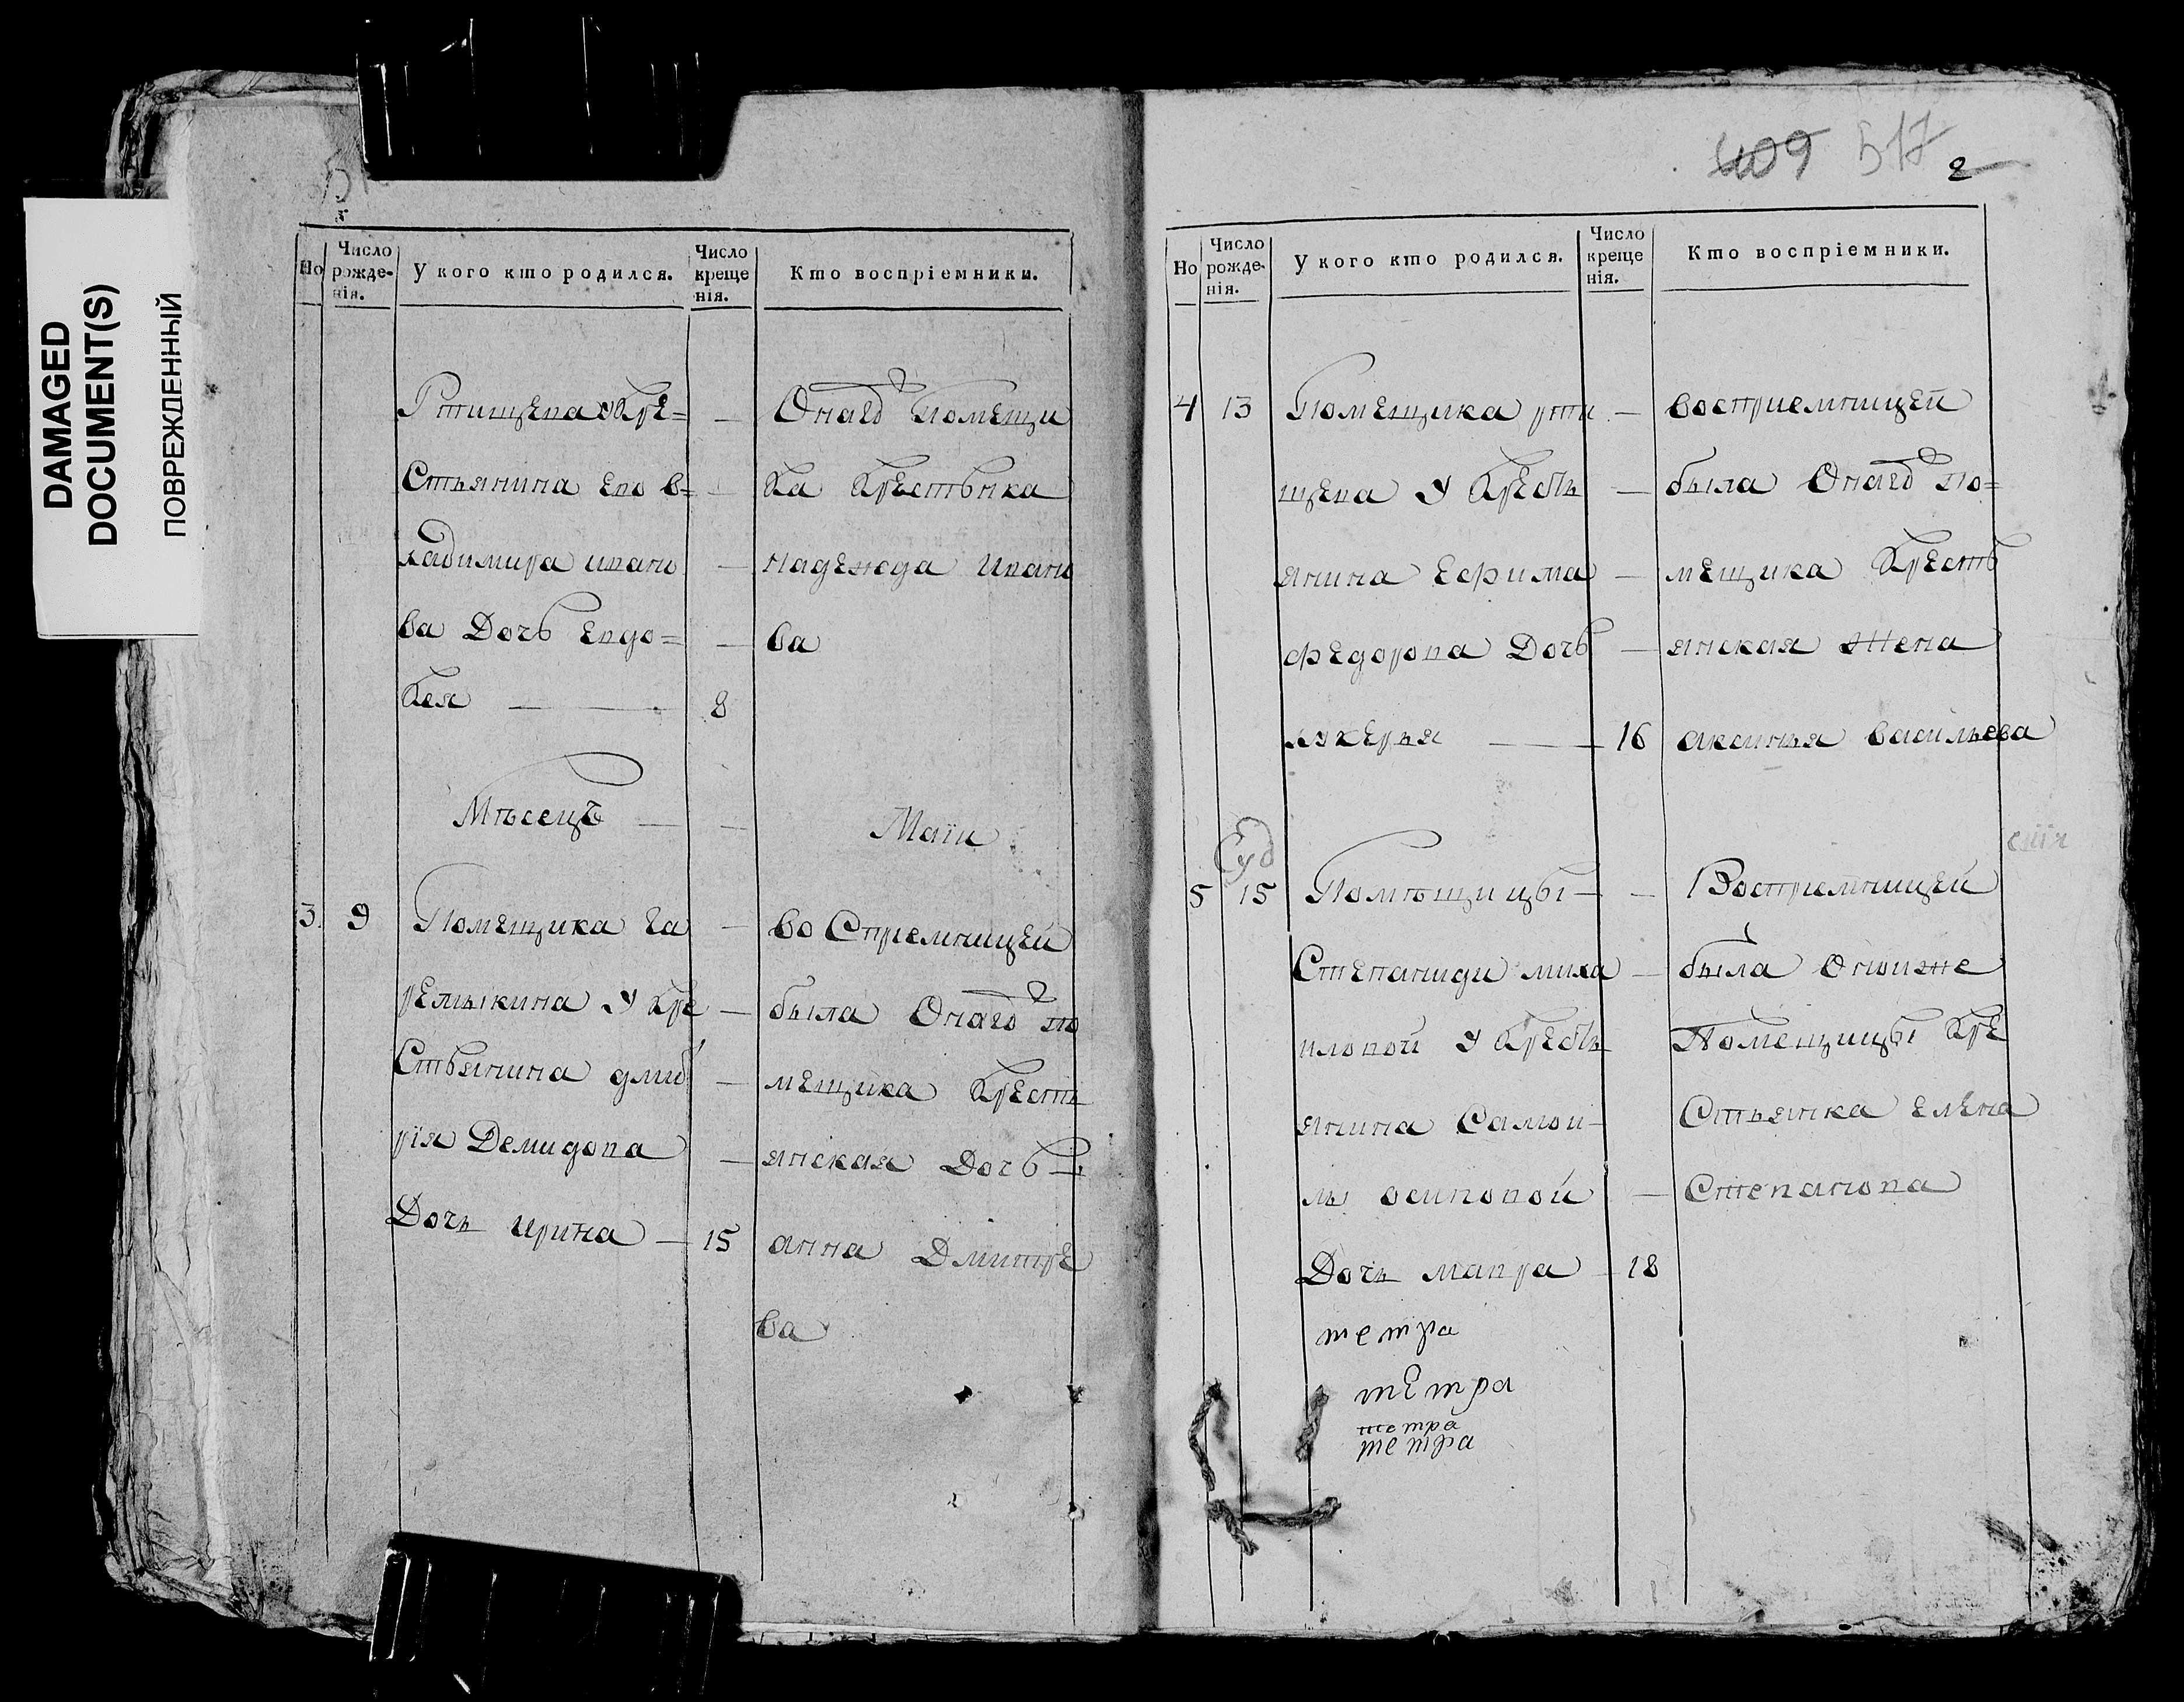 DAMAGED
DOCUMENT(S)
ПОВРЕЖДЕННЫЙ
Но
Число рожде-нія.
У кого кто родился.
Число креще нія.
Кто воспріемники.
Ртищева У Кре=
Стьянина Его в=
ладимира ивано
ва Дочь Евдо=
Кея — 8
Онаго Помещи
ка Крестьнка
надежда Ивано
ва
Мѣсецъ — Маіи
3. 9 Помещика Га
ремыкина У Кре
Стьянина дмит
рія Демидова
Дочь ирина — 15
во Сприемницей
была Онаго по
мещика Крестъ
янская Дочь
анна Дмитре
ва
409 517 2
Но
Число рожде-нія.
У кого кто родился.
Число креще нія.
Кто воспріемники.
4 13 Помещика рти
щева У Крестъ
янина Ефима
федорова Дочь
лукерья — 16
восприемницей
была Онаго по=
мещика Кресть
янская Жена
аксинья васильева
5 15 Помѣщицы
Степаниди миха
иловой У Крестъ
янина Самои
лы осиповой
Дочь мавра 18
Восприемницей
была Оноиже
Помещицы Кре
Стьянка Елена
Степанова
метра
метра
метра
метра